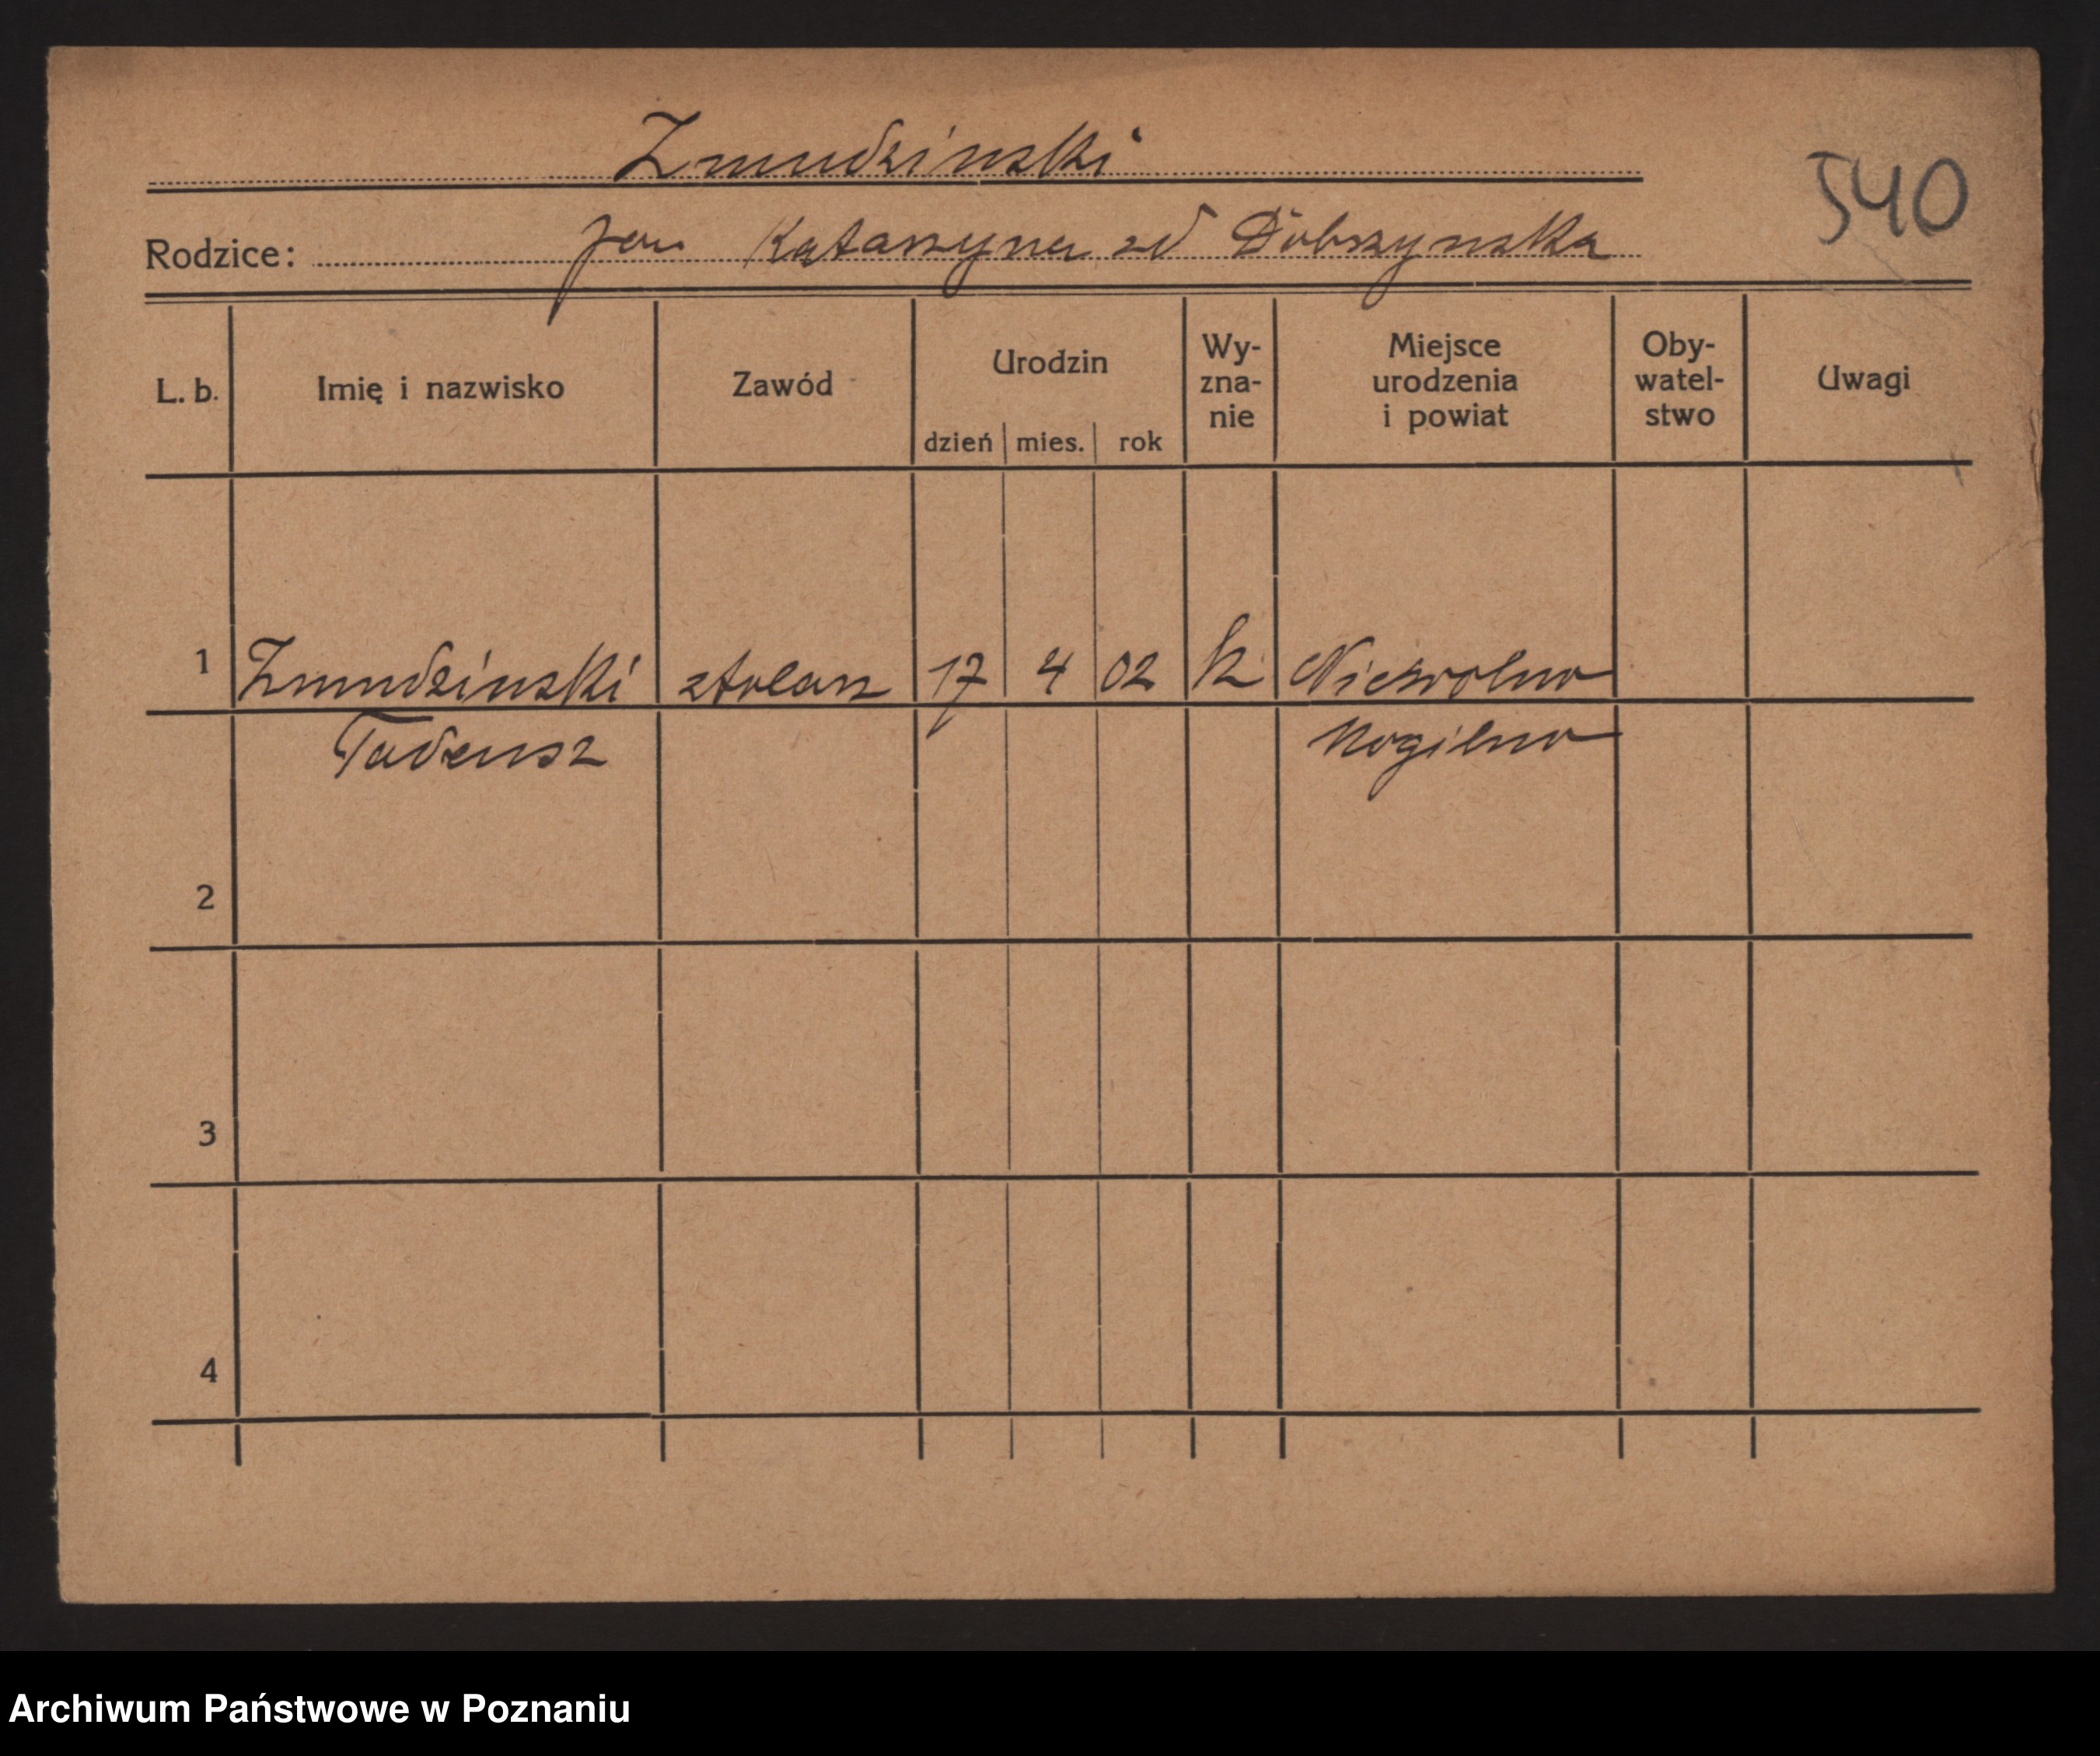 Zmudzinski
540
Rodzice: Jan Katarzyna zd Dobszynska
L. b. Imię i nazwisko Zawód Urodzin dzień mies. rok Wy-zna-nie Miejsce urodzenia i powiat Oby-watel-stwo Uwagi
1 Zmudzinski stolarz 17 4 02 k Niewolno
Tadeusz Mogilno
2
3
4
Archiwum Państwowe w Poznaniu